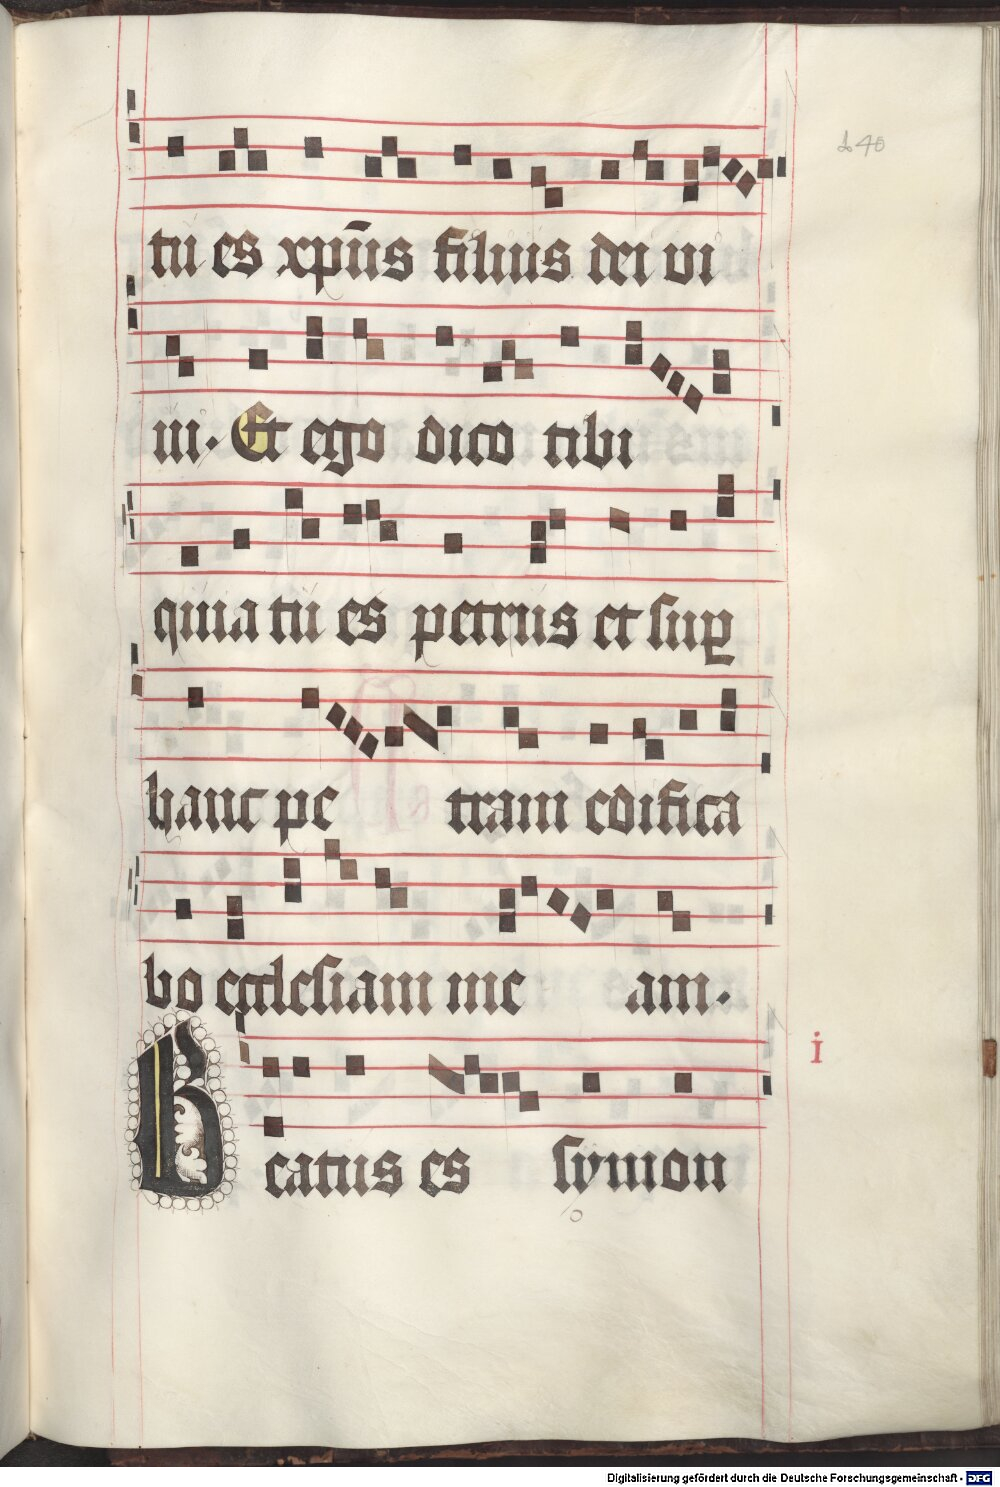 240
tu es xpūs filius dei vi
ui. Et ego dico tibi
quia tu es petrus et suꝑ
hanc pe tram edifica
bo ecclesiam me am.
i
Beatus es symon
Digitalisierung gefördert durch die Deutsche Forschungsgemeinschaft - DFG